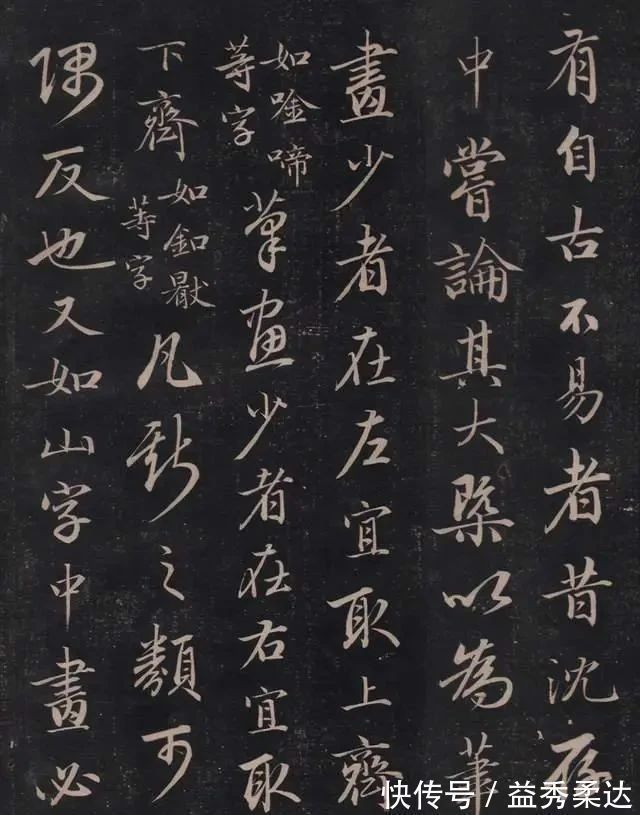 有自古不易者昔沈存
中嘗論其大槩以為筆
畫少者在左宜取上齊
如唫啼
等字
筆畫少者在右宜取
下齊
如釦
等字
凡之類可
隅反也又如山字中畫必
快传号／益秀柔达